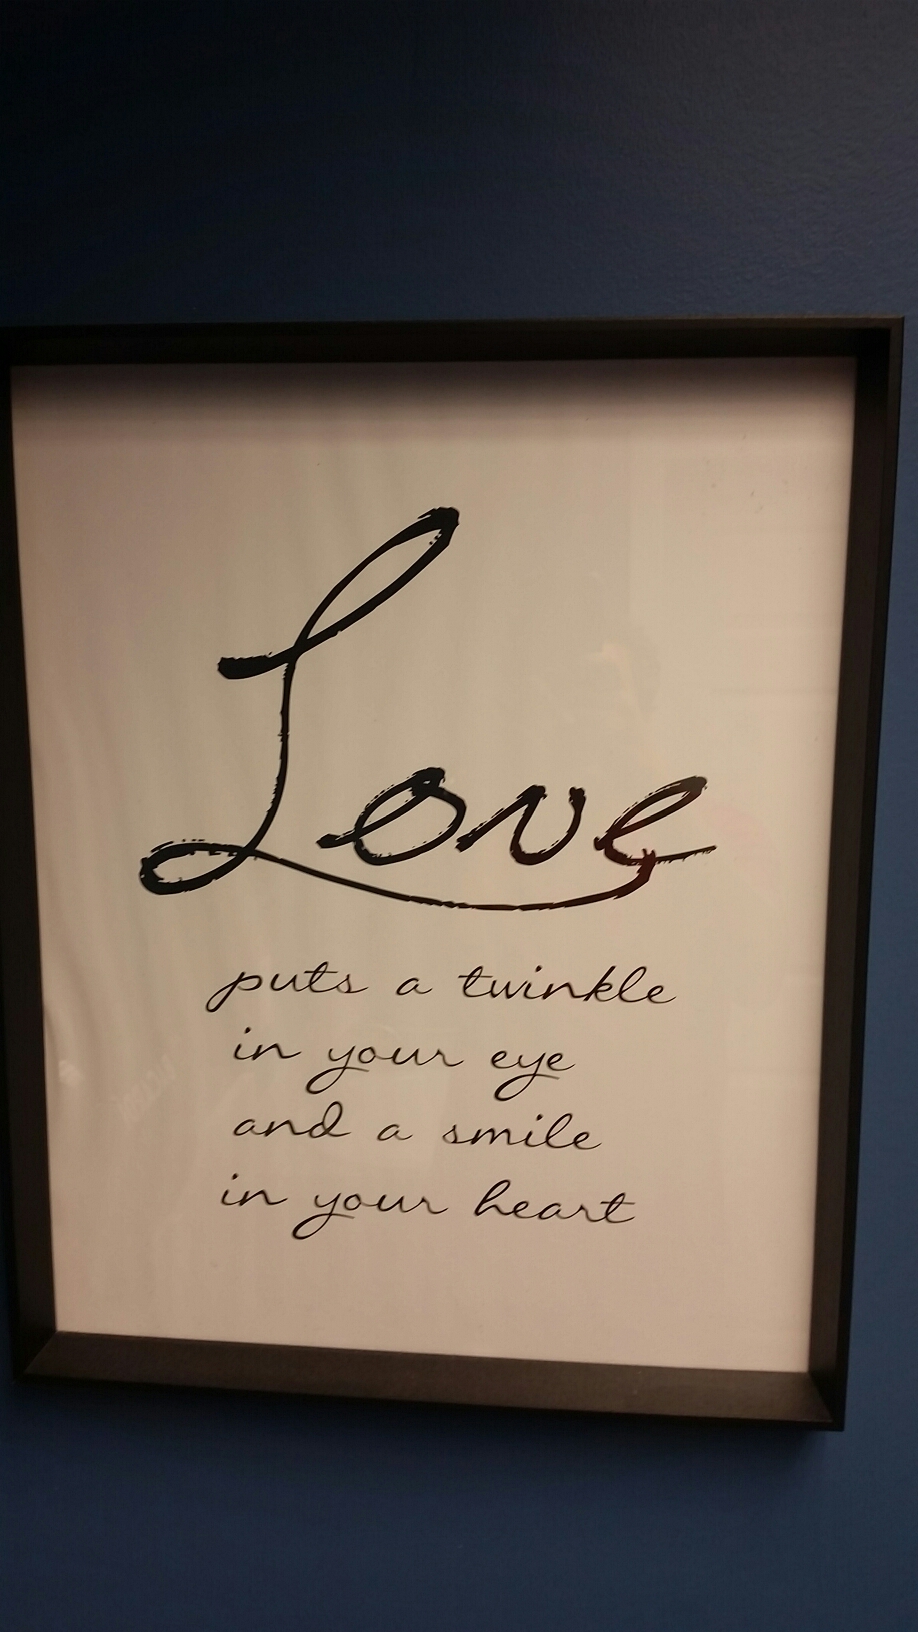 Love
puts a twinkle
in your eye
and a smile
in your heart